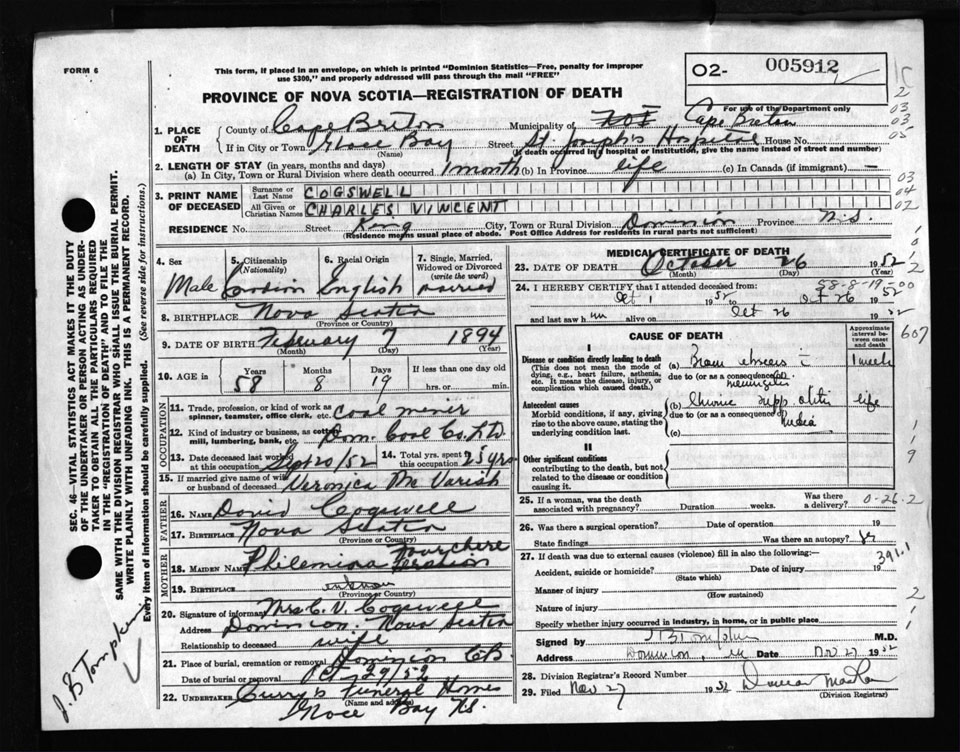 FORM 6
This form, if placed in an envelope, on which is printed "Dominion Statistics—Free, penalty for improper
use $300," and properly addressed will pass through the mail "FREE"
O2- 005912
PROVINCE OF NOVA SCOTIA—REGISTRATION OF DEATH
For use of the Department only
1. PLACE OF DEATH
County of Cape Breton Municipality of Cape Breton
If in City or Town Glace Bay Street St. Joseph's Hospital House No.
(Name) (If death occurred in a hospital or institution, give the name instead of street and number)
2. LENGTH OF STAY (in years, months and days)
(a) In City, Town or Rural Division where death occurred 1 month (b) In Province life (c) In Canada (if immigrant) —
3. PRINT NAME OF DECEASED
Surname or Last Name COGSWELL
All Given or Christian Names CHARLES VINCENT
RESIDENCE No. Street King City, Town or Rural Division Dominion Province N.S.
(Residence means usual place of abode. Post Office Address for residents in rural parts not sufficient)
4. Sex
Male
5. Citizenship
(Nationality)
Canadian
6. Racial Origin
English
7. Single, Married, Widowed or Divorced
(write the word)
married
8. BIRTHPLACE Nova Scotia
(Province or Country)
9. DATE OF BIRTH February 7 1894
(Month) (Day) (Year)
10. AGE in
Years 58
Months 8
Days 19
If less than one day old
hrs. or min.
OCCUPATION
11. Trade, profession, or kind of work as
spinner, teamster, office clerk, etc. coal miner
12. Kind of industry or business, as cotton
mill, lumbering, bank, etc. Dom. Coal Co. Ltd
13. Date deceased last worked
at this occupation Sept 20/52
14. Total yrs. spent in
this occupation 25 yrs
15. If married give name of wife
or husband of deceased Veronica Mc Varish
FATHER
16. NAME David Cogswell
17. BIRTHPLACE Nova Scotia
(Province or Country)
MOTHER
18. MAIDEN NAME Fourchere
19. BIRTHPLACE unknown
(Province or Country)
20. Signature of informant Mrs C. V. Cogswell
Address Dominion. Nova Scotia
Relationship to deceased wife
21. Place of burial, cremation or removal Dominion C.B.
Date of burial or removal Oct 29/52
22. UNDERTAKER Curry's Funeral Homes
(Name and address)
Glace Bay N.S.
MEDICAL CERTIFICATE OF DEATH
23. DATE OF DEATH October 26 1952
(Month) (Day) (Year)
58-8-19-00
24. I HEREBY CERTIFY that I attended deceased from:
Oct 1 1952 to Oct 26 1952
and last saw him alive on Oct 26 1952
CAUSE OF DEATH
Approximate interval between onset and death
I
Disease or condition directly leading to death
(This does not mean the mode of
dying, e.g., heart failure, asthenia,
etc. It means the disease, injury, or
complication which caused death.)
(a) Brain abscess 1 week
due to (or as a consequence of)
meningitis
Antecedent causes
Morbid conditions, if any, giving
rise to the above cause, stating the
underlying condition last.
(b) Chronic supp. otitis life
due to (or as a consequence of)
media
(c)
II
Other significant conditions
contributing to the death, but not
related to the disease or condition
causing it.
25. If a woman, was the death
associated with pregnancy? Duration weeks. Was there
a delivery?
0-26-2
26. Was there a surgical operation? Date of operation 19
State findings Was there an autopsy?
27. If death was due to external causes (violence) fill in also the following:—
391.1
Accident, suicide or homicide? Date of injury 19
(State which)
Manner of injury
(How sustained)
Nature of injury
Specify whether injury occurred in industry, in home, or in public place
Signed by J B Tompkins M.D.
Address Dominion, Date Nov 27 1952
28. Division Registrar's Record Number
29. Filed Nov 27 1952
(Division Registrar)
SEC. 46—VITAL STATISTICS ACT MAKES IT THE DUTY
OF THE UNDERTAKER OR PERSON ACTING AS UNDER-
TAKER TO OBTAIN ALL THE PARTICULARS REQUIRED
IN THE "REGISTRATION OF DEATH" AND TO FILE THE
SAME WITH THE DIVISION REGISTRAR WHO SHALL ISSUE THE BURIAL PERMIT.
WRITE PLAINLY WITH UNFADING INK. THIS IS A PERMANENT RECORD.
Every item of Information should be carefully supplied. (See reverse side for instructions.)
J. B Tompkins
2
03
03
05
03
04
02
607